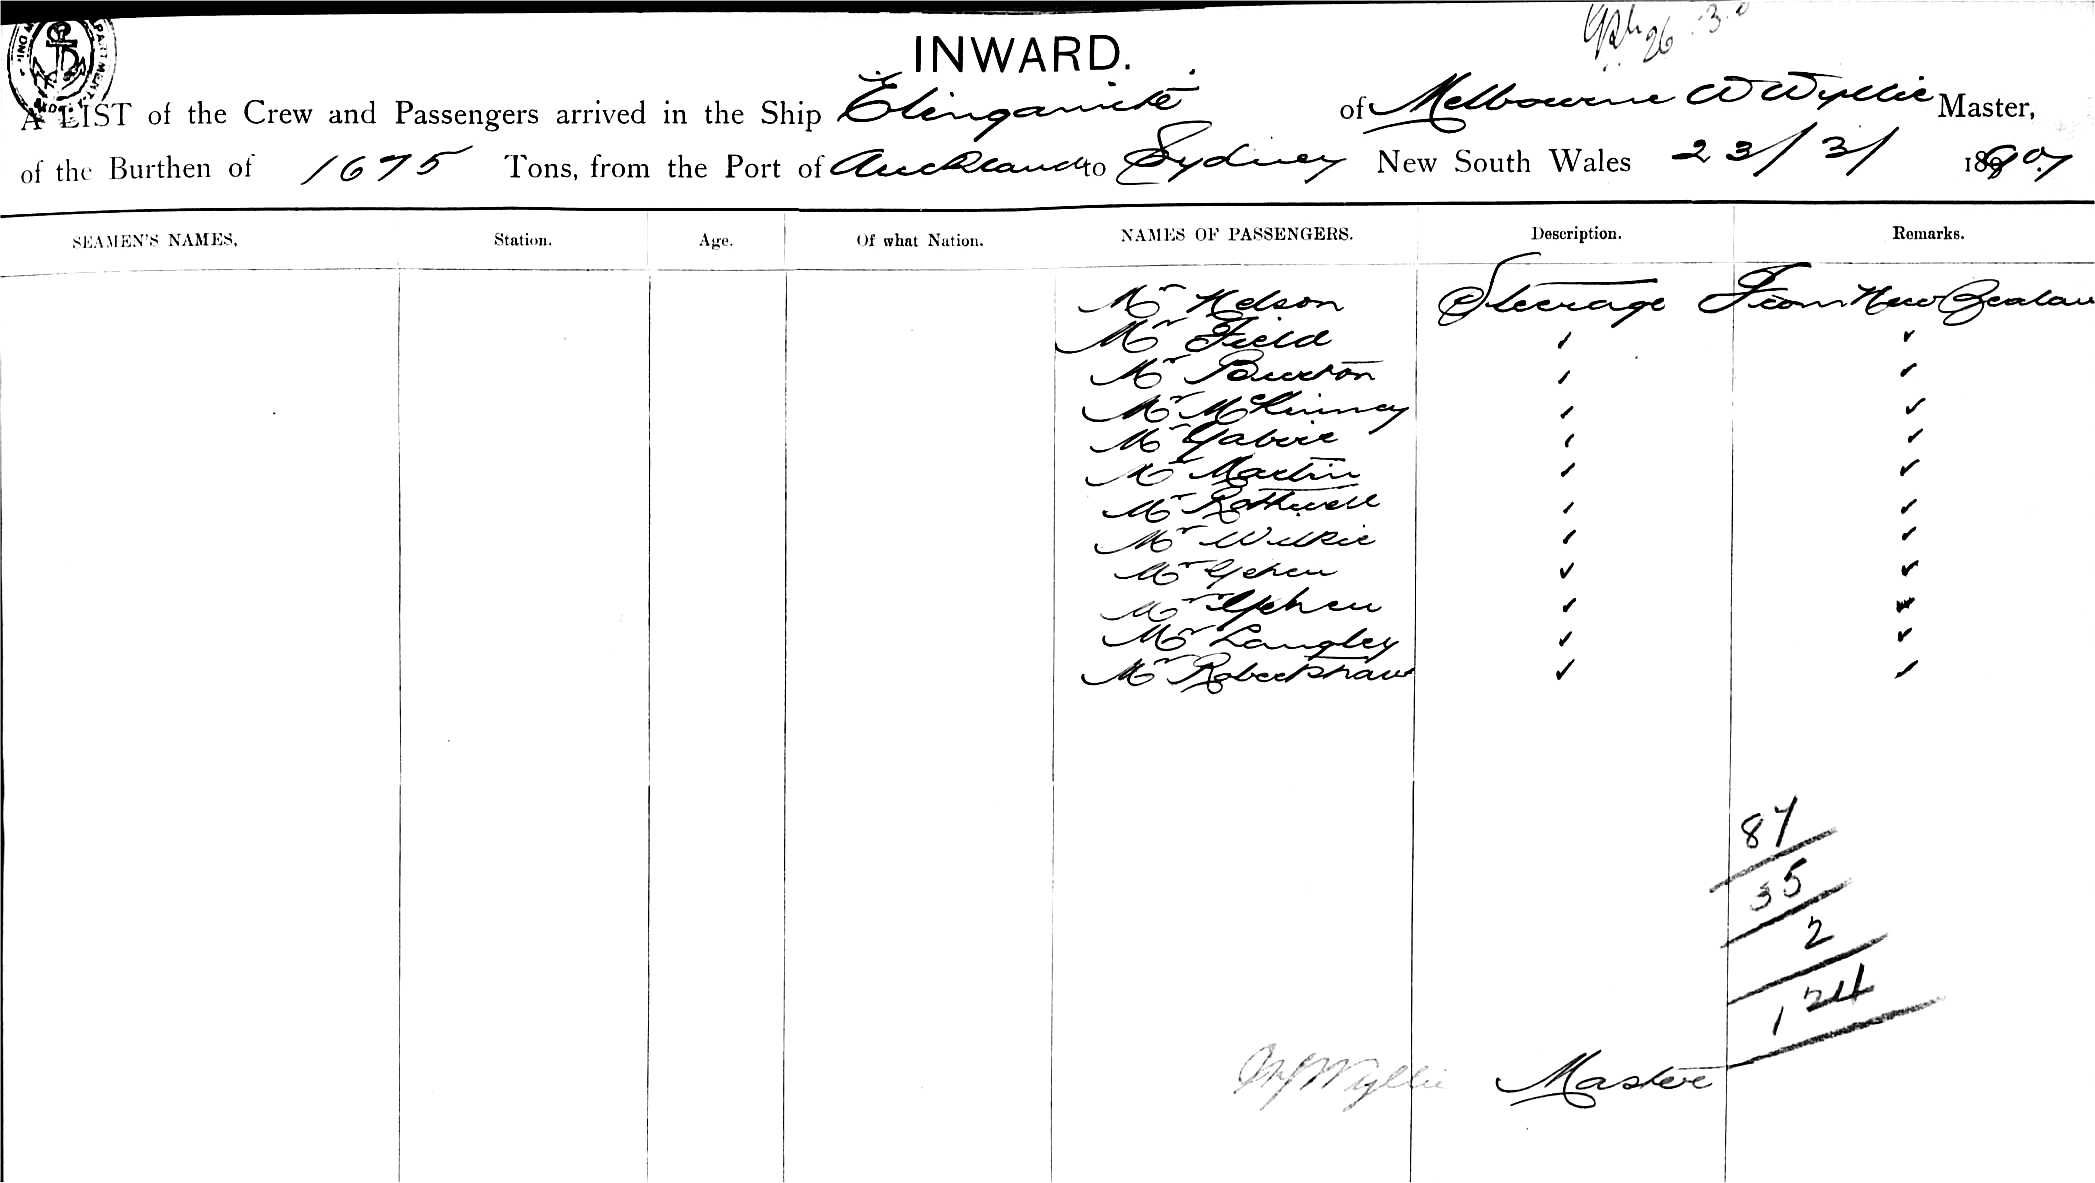 INWARD.
A LIST of the Crew and Passengers arrived in the Ship Elingamite of Melbourne W Wyllie Master,
of the Burthen of 1675 Tons, from the Port of Auckland to Sydney New South Wales 23/3/ 18
SEAMEN'S NAMES, Station. Age. Of what Nation. NAMES OF PASSENGERS. Description. Remarks.
Mr Nelson Steerage From New Zealan
Mr Field
Mr Burton
Mr McKinney
Mr
Mr Martin
Mr Rothwell
Mr Wilkie
Mr
Mr
Mr Langley
Mr Robertshaw
87
35
2
124
Wyllie Master